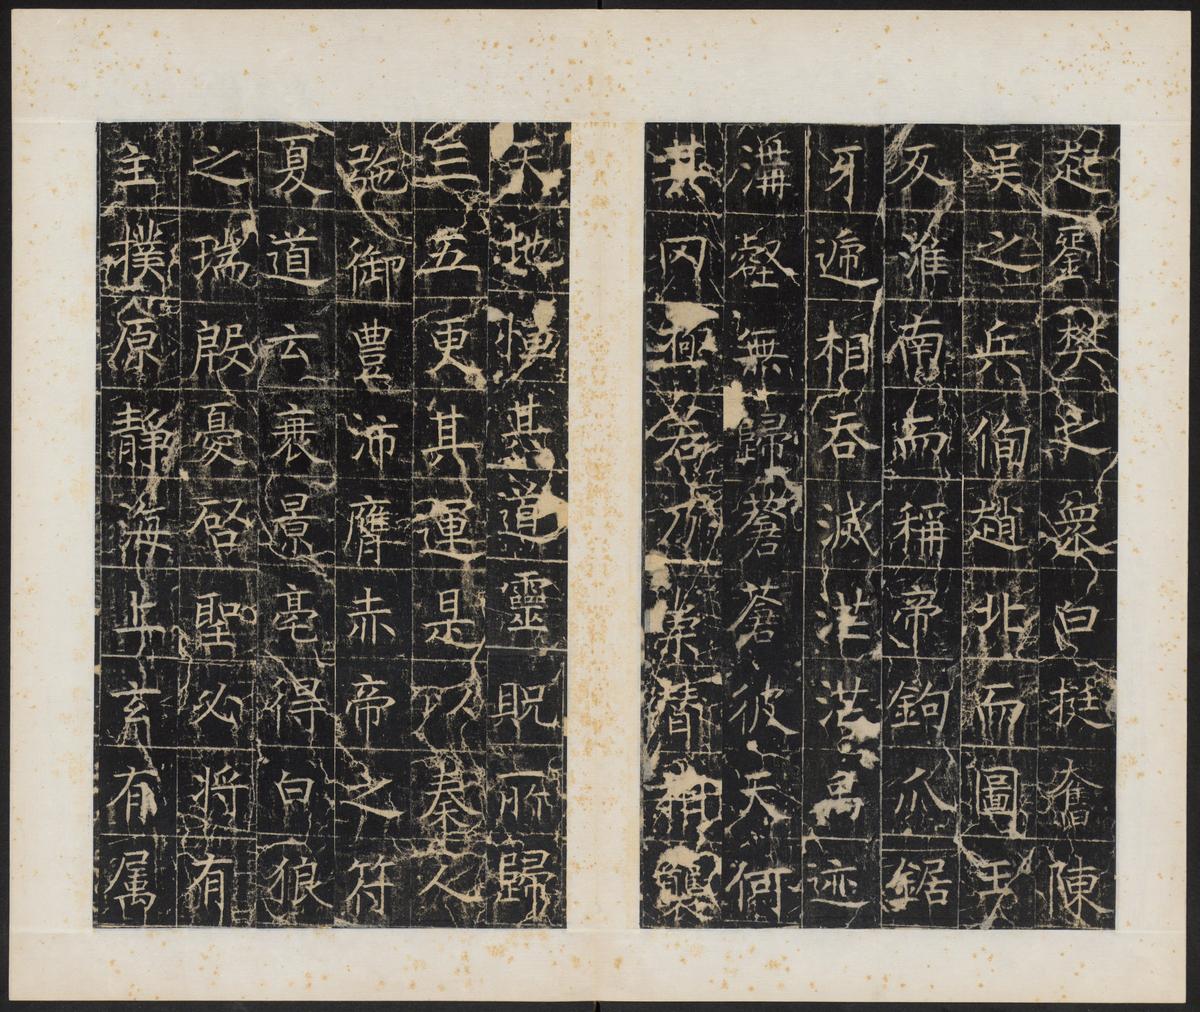 起樊之衆白挺奮陳
吳之兵侚趙北而圖王
反淮南而稱帝鉤爪鋸
牙遞相吞滅茫茫禹迹
溝壑無歸蒼蒼彼天何
其罔極若乃業替
天地甚道靈貺所歸
三五更其運是以秦人
弛御豐沛膺赤帝之符
夏道云衰景亳得白狼
之瑞殷憂啓聖必將有
主撲原靜海上玄有属